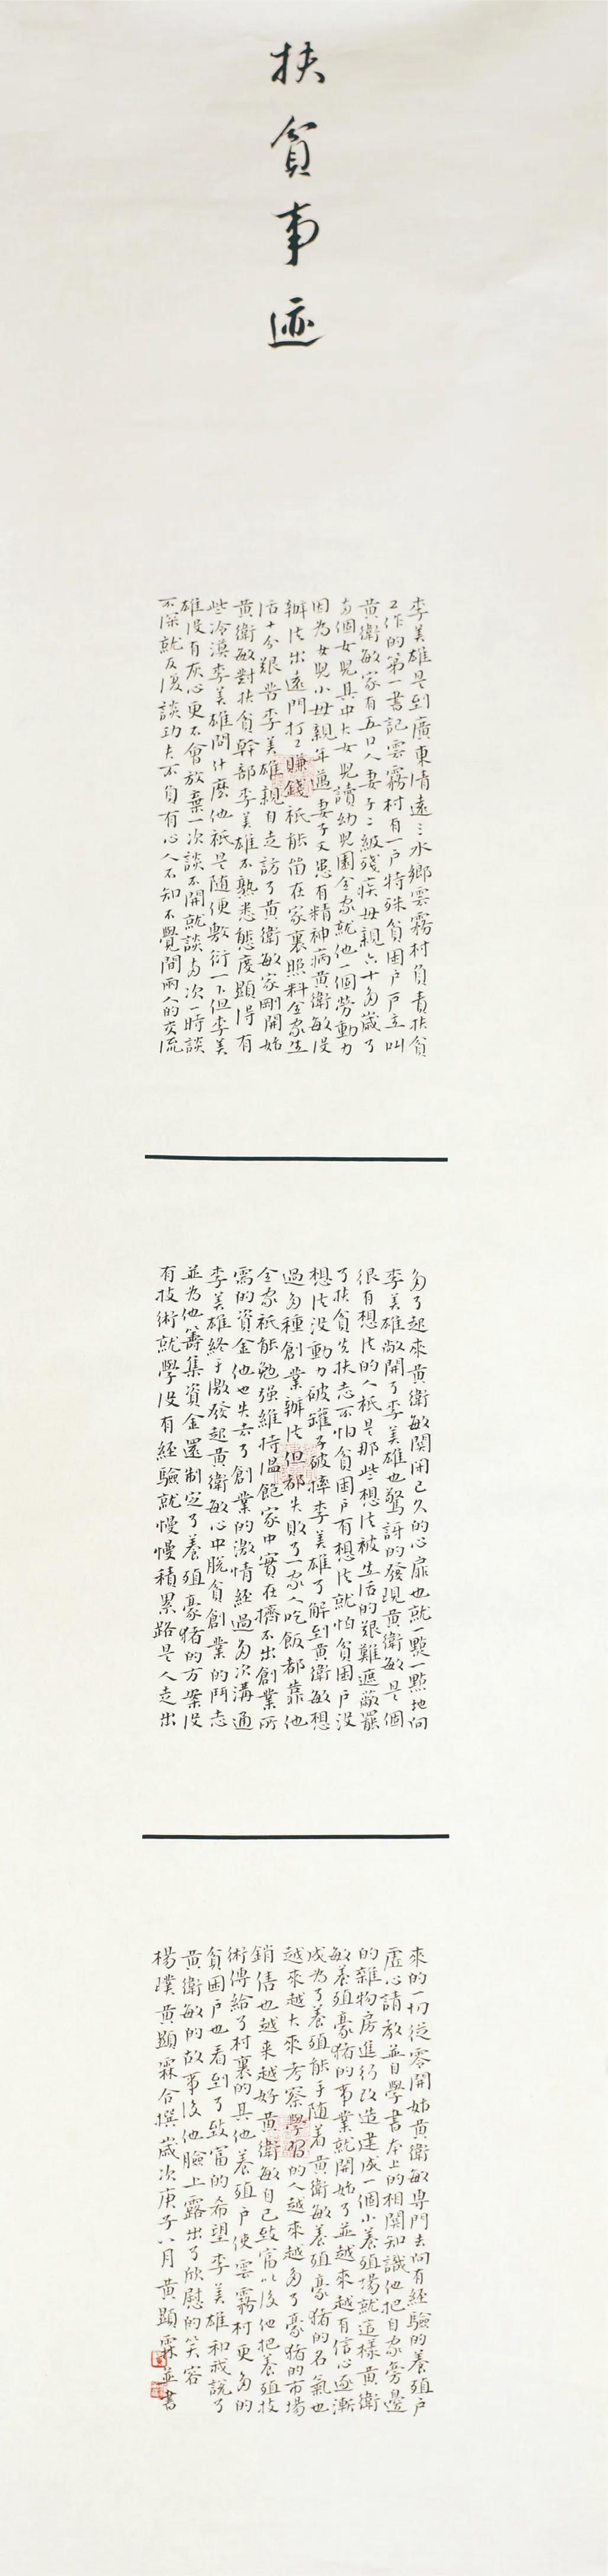 扶貧事迹
李美雄是到廣東清遠三水鄉雲霧村負責扶貧
工作的第一書記雲霧村有一戶特殊貧困戶戶主叫
黃衛敏家有五口人妻子二級殘疾母親六十多歲了
兩個女兒其中大女兒讀幼兒園全家就他一個勞動力
因為女兒小母親年邁妻子又患有精神病黃衛敏沒
辦法出遠門打工賺錢祇能留在家裏照料全家生
活十分艱苦李美雄親自走訪了黃衛敏家剛開始
黃衛敏對扶貧幹部李美雄不熟悉態度顯得有
些冷漠李美雄問什麼他祇是隨便敷衍一下但李美
雄沒有灰心更不會放棄一次談不開就談兩次一時談
不深就反復談功夫不負有心人不知不覺間兩人的交流
多了起來黃衛敏關閉已久的心扉也就一點一點地向
李美雄敞開了李美雄也驚訝的發現黃衛敏是個
很有想法的人祇是那些想法被生活的艱難遮蔽罷
了扶貧先扶志不怕貧困戶有想法就怕貧困戶沒
想法沒動力破罐子破摔李美雄了解到黃衛敏想
過多種創業辦法但都失敗了一家人吃飯都靠他
全家祇能勉強維持溫飽家中實在擠不出創業所
需的資金他也失去了創業的激情經過多次溝通
李美雄終于激發起黃衛敏心中脫貧創業的鬥志
並為他籌集資金還制定了養殖豪猪的方案沒
有技術就學沒有經驗就慢慢積累路是人走出
來的一切從零開始黃衛敏專門去向有經驗的養殖戶
虛心請教並自學書本上的相關知識他把自家旁邊
的雜物房進行改造建成一個小養殖場就這樣黃衛
敏養殖豪猪的事業就開始了並越來越有信心逐漸
成為了養殖能手隨着黃衛敏養殖豪猪的名氣也
越來越大來考察學習的人越來越多了豪猪的市場
銷售也越来越好黃衛敏自己致富以後他把養殖技
術傳給了村裏的其他養殖戶使雲霧村更多的
貧困戶也看到了致富的希望李美雄和我說了
黃衛敏的故事後他臉上露出了欣慰的笑容
楊璞黃顯霖合撰歲次庚子八月黃顯霖並書